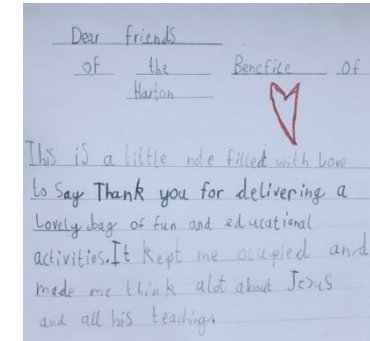 Dear friends
of the Benefice of
Harton
This is a little note filled with love
to say Thank you for delivering a
Lovely bag of fun and educational
activities. It kept me ocupied and
made me think alot about Jesus
and all his teachings.